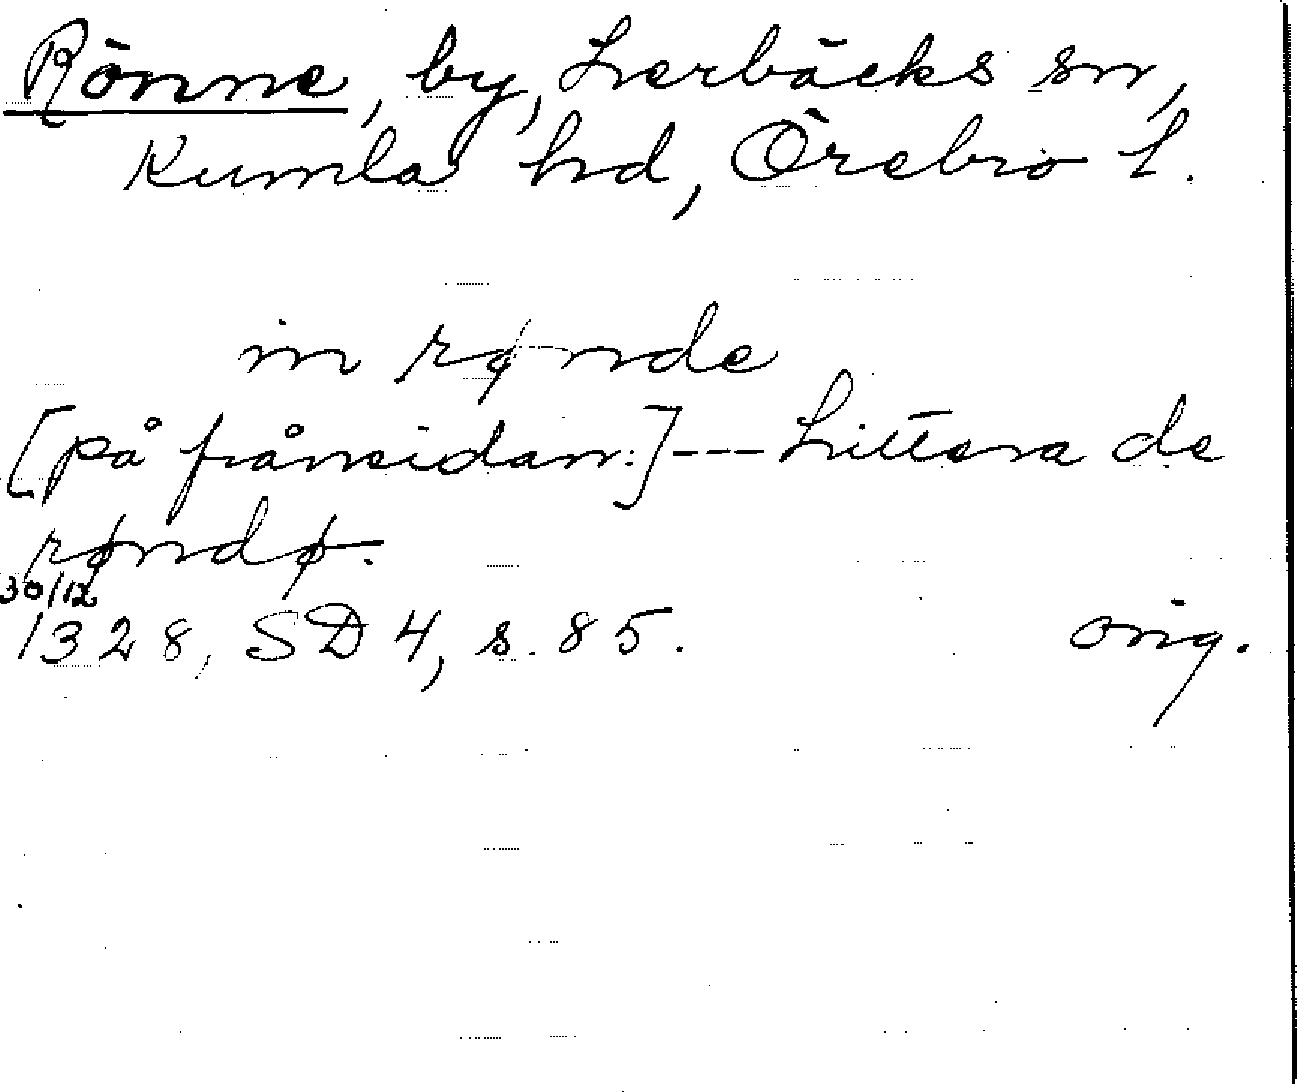 Rönne, by, Lerbäcks sn,
Kumla hd, Örebro l.
in rønde
[på frånsidan:] --- Littera de
røndø.
30/12
1328, SD 4, s. 85. orig.